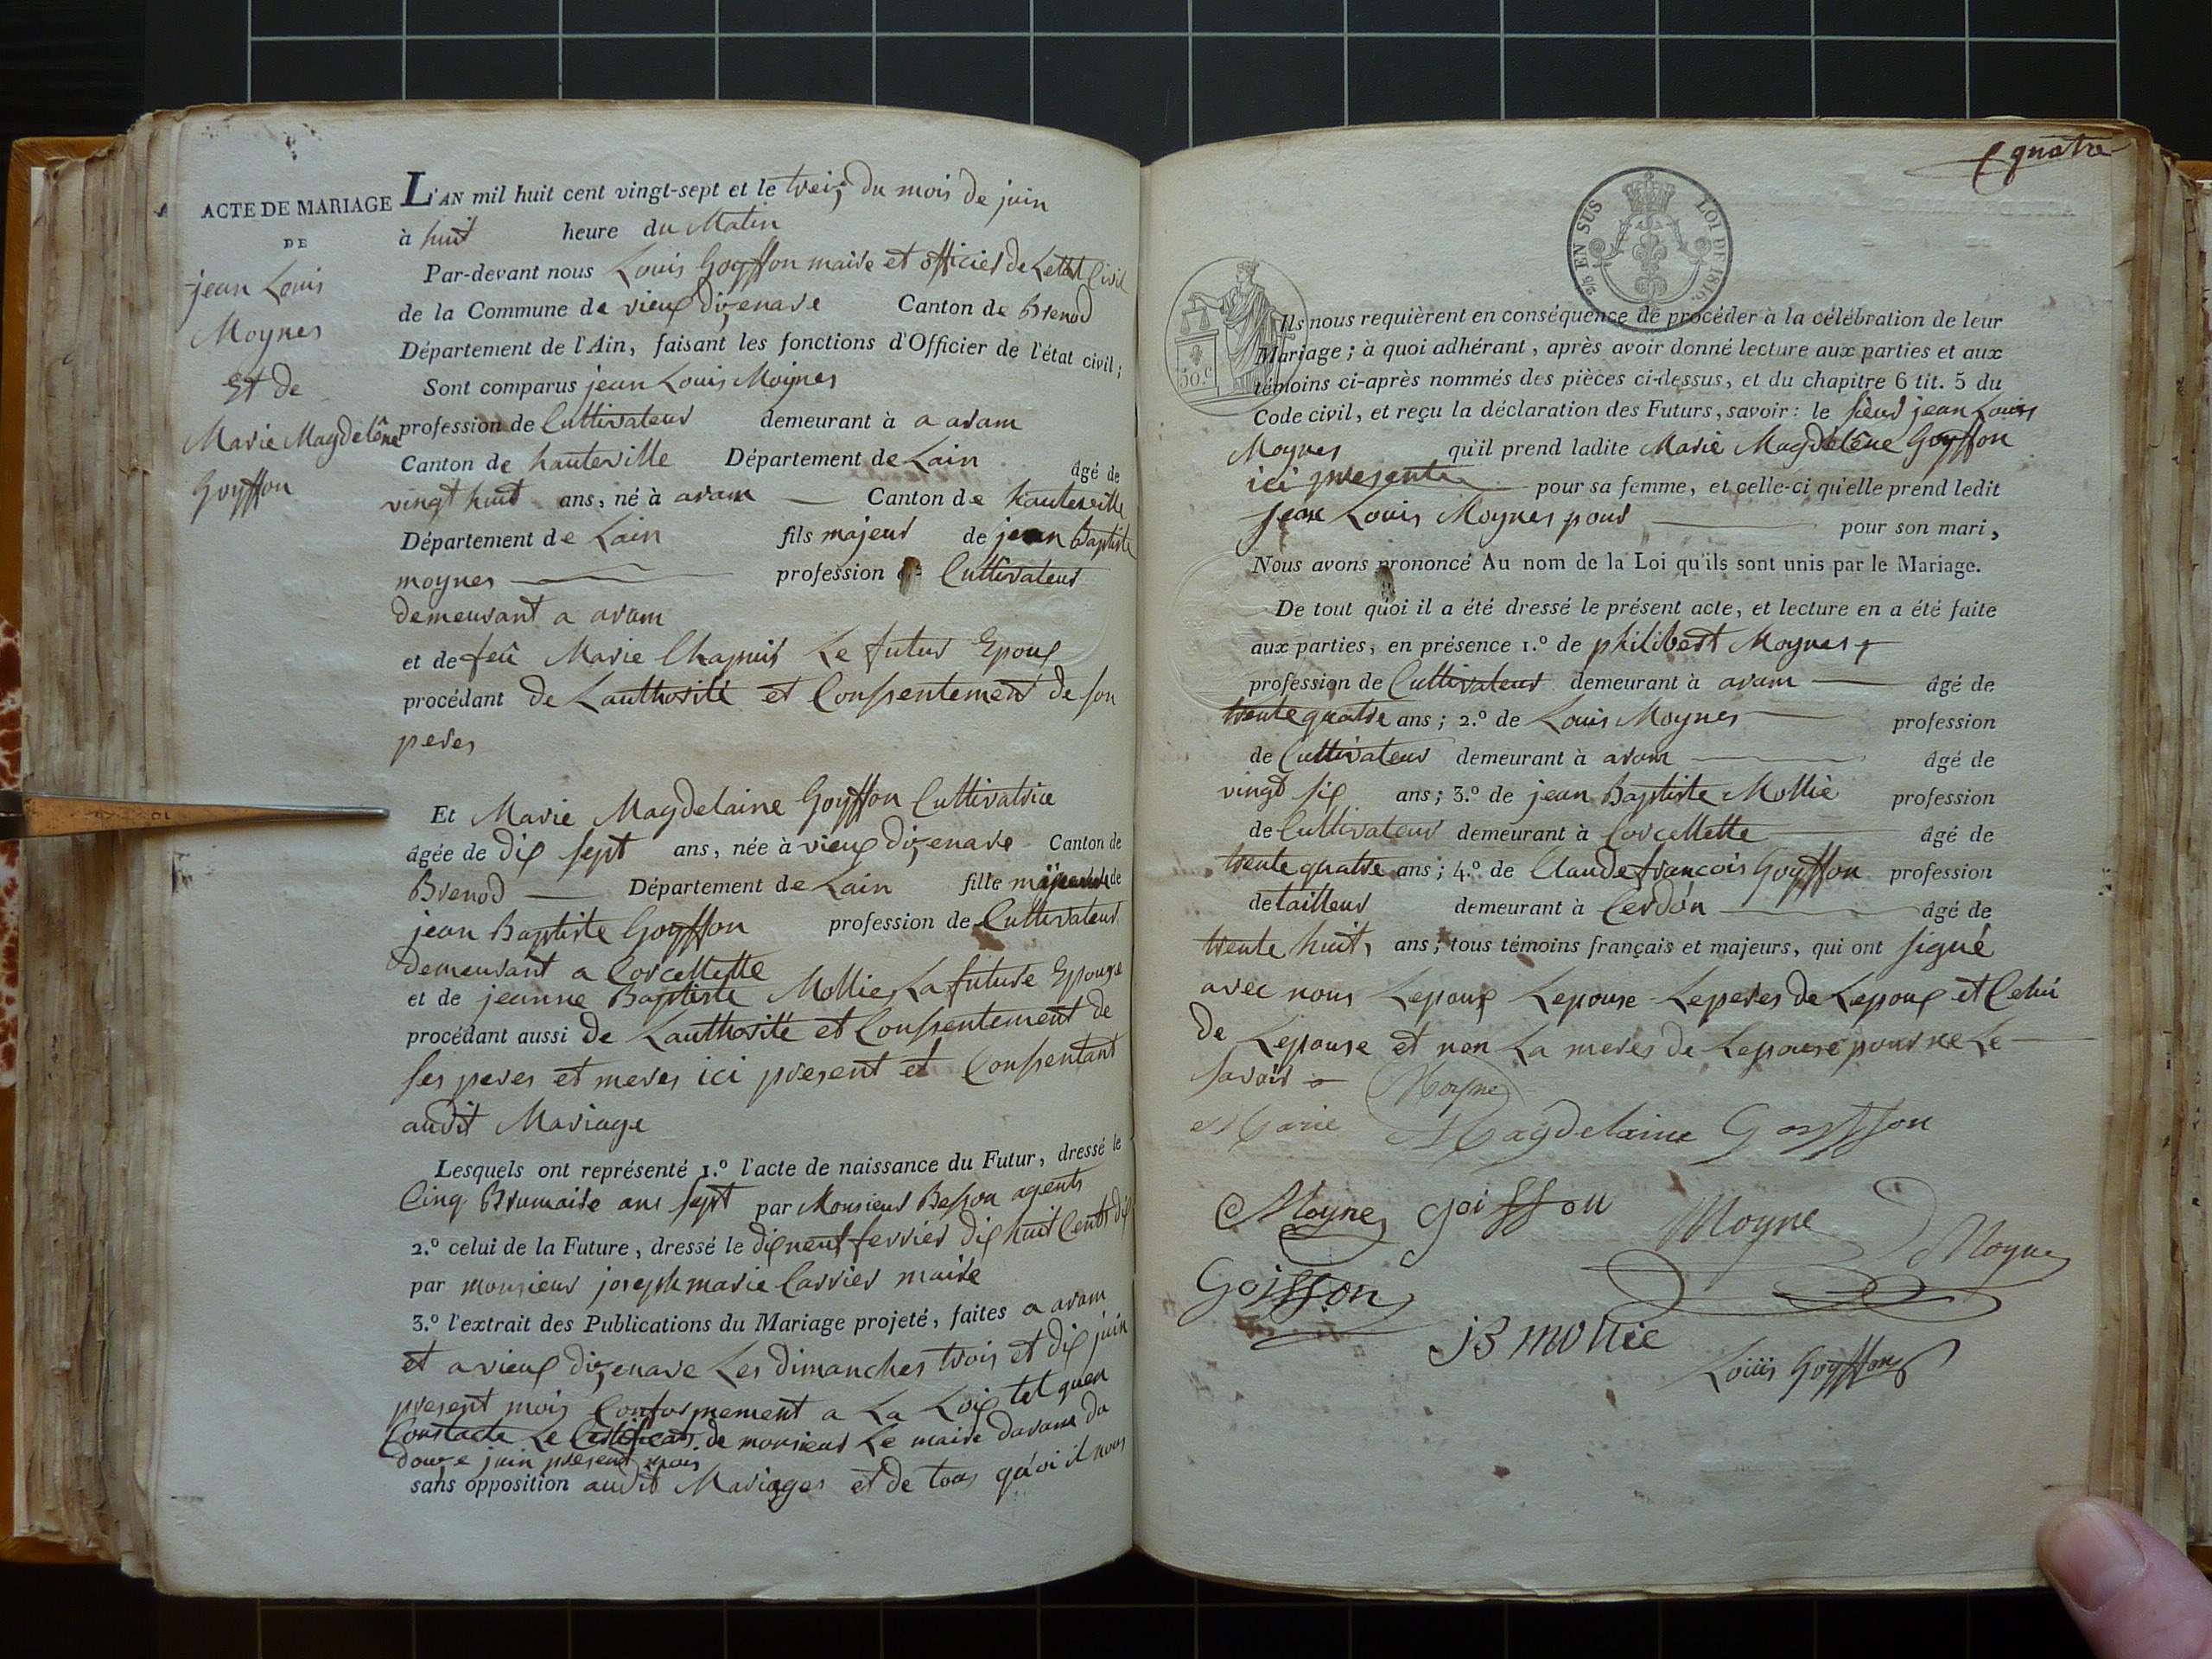 ACTE DE MARIAGE
DE
jean Louis
Moynes
Et de
Marie Magdelêne
Goyffon
L'AN mil huit cent vingt-sept et le treiz du mois de juin
à huit heure du Matin
Par-devant nous Louis Goyffon maire et officier de Letat Civil
de la Commune de vieux dizenave Canton de Brenod
Département de l'Ain, faisant les fonctions d'Officier de l'état civil;
Sont comparus jean Louis Moynes
profession de Cultivateur demeurant à a aram
Canton de hauteville Département de Lain âgé de
vingt huit ans, né à aram Canton de hauteville
Département de Lain fils majeur de jean Baptiste
moynes profession de Cultivateur
demeurant a aram
et de feû Marie Chapuis Le futur Epoux
procédant de Lauthorité et Conssentement de son
peres
Et Marie Magdelaine Goyffon Cultivatrice
âgée de dix sept ans, née à vieux dizenave Canton de
Brenod Département de Lain fille de
jean Baptiste Goyffon profession de Cultivateur
demeurant a Corcellette
et de jeanne Baptiste Mollie La future Epouze
procédant aussi de Lauthorité et Conssentement de
ses peres et meres ici present et Conssentant
audit Mariage
Lesquels ont représenté 1.º l'acte de naissance du Futur, dressé le
Cinq Brumaire ans sept par Monsieur Besson agents
2.º celui de la Future, dressé le dix neuf fevrier dix huit Cents dix
par monsieur joseph marie Carrier maire
3.º l'extrait des Publications du Mariage projeté, faites a aram
et a vieux dizenave Les dimanches trois et dix juin
present mois Conformement a La Loix tel quen
Constacte Le Certificats de monsieur Le maire daram du
douze juin present mois
sans opposition audit Mariages et de tous quoi il nous
quatre
5/6 EN SUS LOI DE 1816.
50.c
Ils nous requièrent en conséquence de procéder à la célébration de leur
Mariage; à quoi adhérant, après avoir donné lecture aux parties et aux
témoins ci-après nommés des pièces ci-dessus, et du chapitre 6 tit. 5 du
Code civil, et reçu la déclaration des Futurs, savoir: le sieur jean Louis
Moynes qu'il prend ladite Marie Magdelêne Goyffon
ici presente pour sa femme, et celle-ci qu'elle prend ledit
jean Louis Moynes pour pour son mari,
Nous avons prononcé Au nom de la Loi qu'ils sont unis par le Mariage.
De tout quoi il a été dressé le présent acte, et lecture en a été faite
aux parties, en présence 1.º de philibert Moynes
profession de Cultivateur demeurant à aram âgé de
trente quatre ans; 2.º de Louis Moynes profession
de Cultivateur demeurant à aram âgé de
vingt six ans; 3.º de jean Baptiste Mollie profession
de Cultivateur demeurant à Corcellette âgé de
trente quatre ans; 4.º de Claude francois Goyffon profession
de tailleur demeurant à Cerdon âgé de
trente huit, ans; tous témoins français et majeurs, qui ont signé
avec nous Lepoux Lepouse Leperes de Lepoux et Celui
de Lepouse et non La meres de Lepouse pour ne Le
savoir
Moyne
Marie Magdelaine Goyffon
Moyne goiffon Moyne Moyne
Goiffon
JB mollie
Louis Goyffon